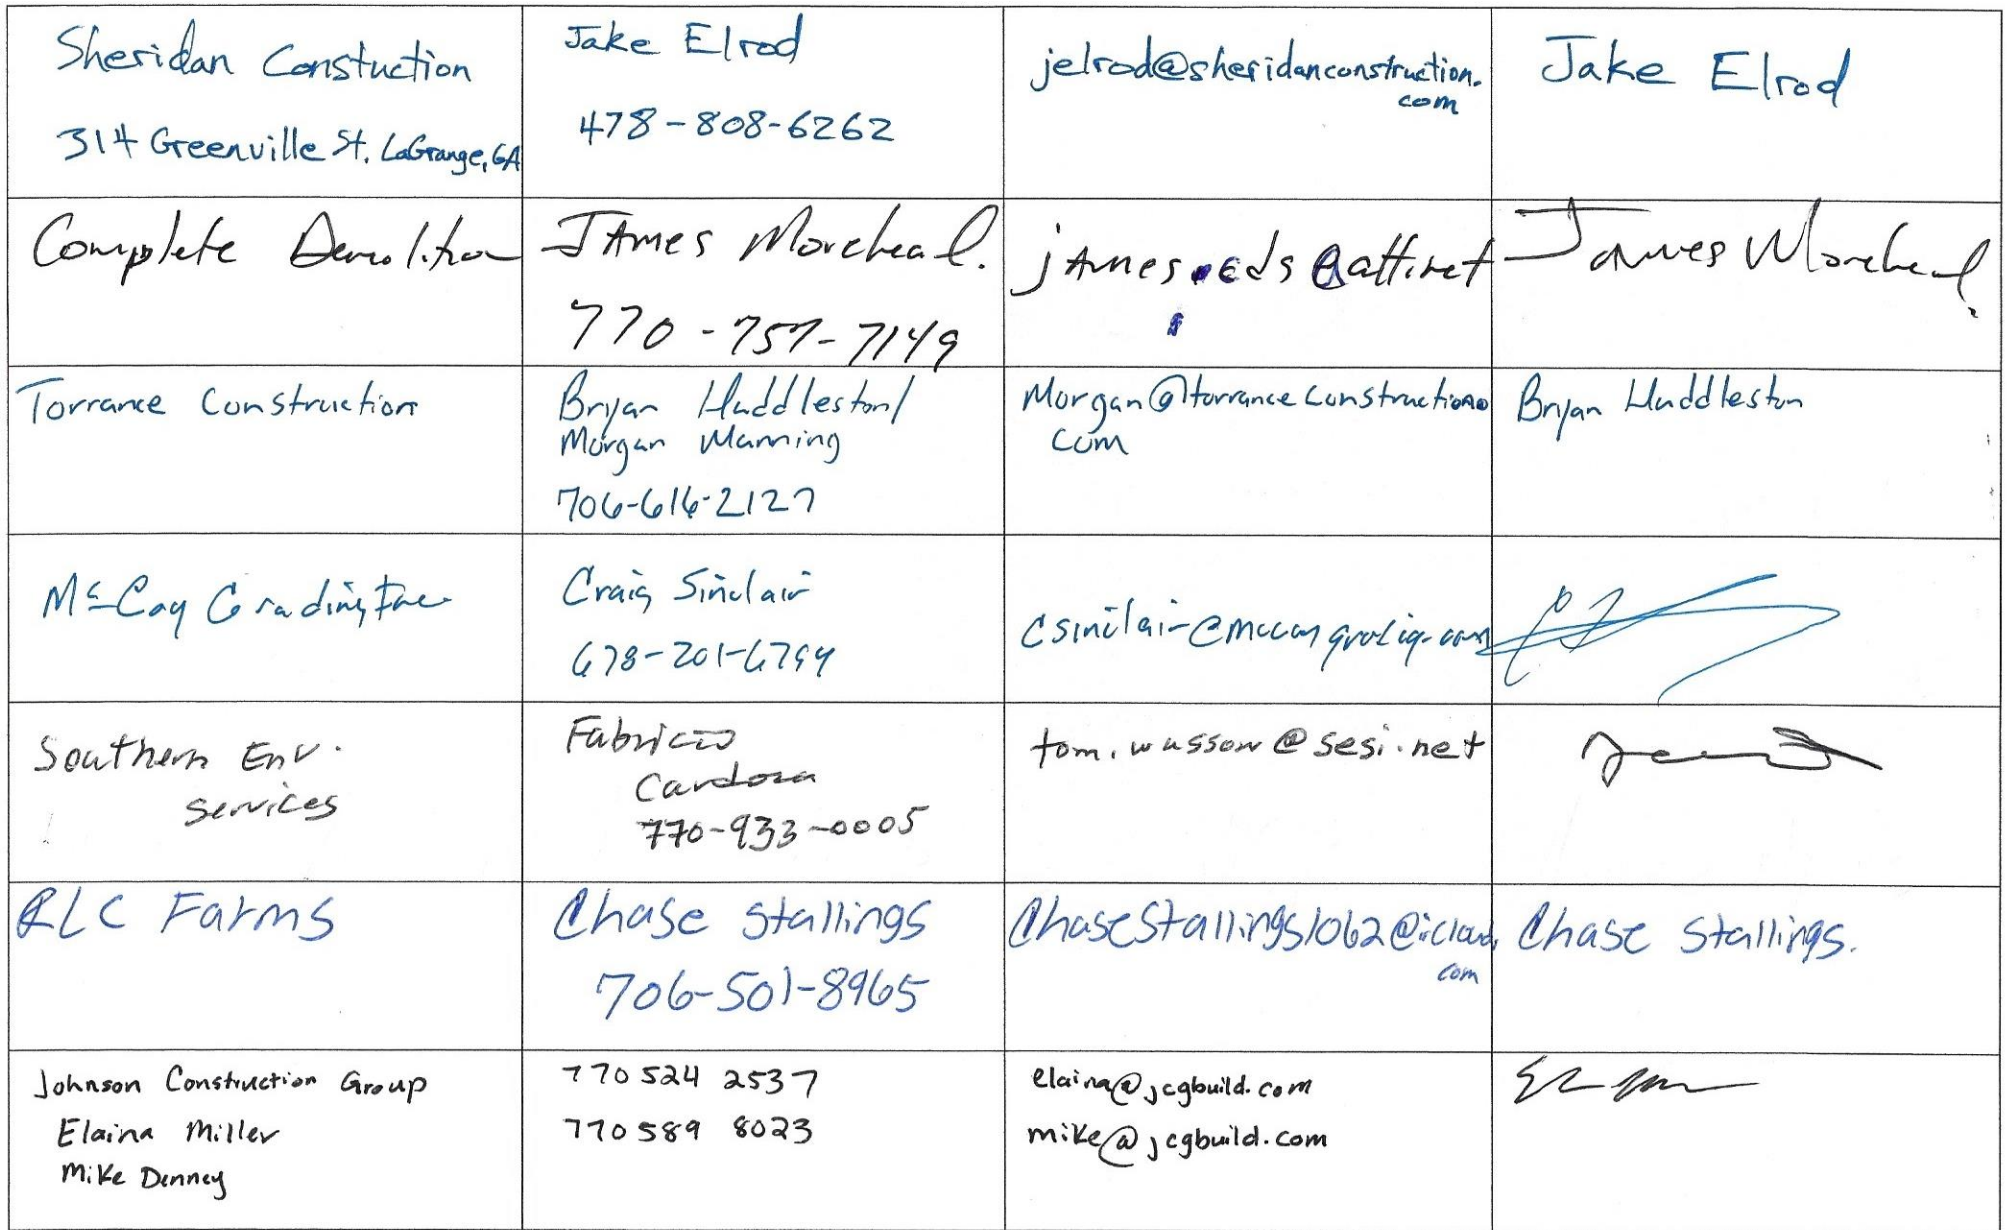 Sheridan Constuction
314 Greenville St. LaGrange, GA
Jake Elrod
478-808-6262
jelrod@sheridanconstruction.
com
Jake Elrod
Complete Demolition
JAmes Morehead.
770-757-7149
jAmes.cds@att.net
James Morehead.
Torrance Construction
Bryan Huddleston/
Morgan Manning
706-616-2127
Morgan@torranceconstruction.
com
Bryan Huddleston
McCoy Grading, Inc
Craig Sinclair
678-201-6794
csinclair@mccoygrading.com
Southern Env.
Services
Fabricio
Cardoza
770-933-0005
tom.wasson@sesi.net
RLC Farms
Chase Stallings
706-501-8965
ChaseStallings1062@icloud.
com
Chase Stallings.
Johnson Construction Group
Elaina Miller
Mike Denney
770 524 2537
770 589 8023
elaina@jcgbuild.com
mike@jcgbuild.com